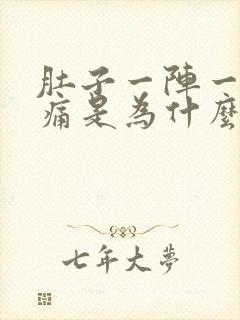 肚子一陣一
痛是為什麼
七年大夢